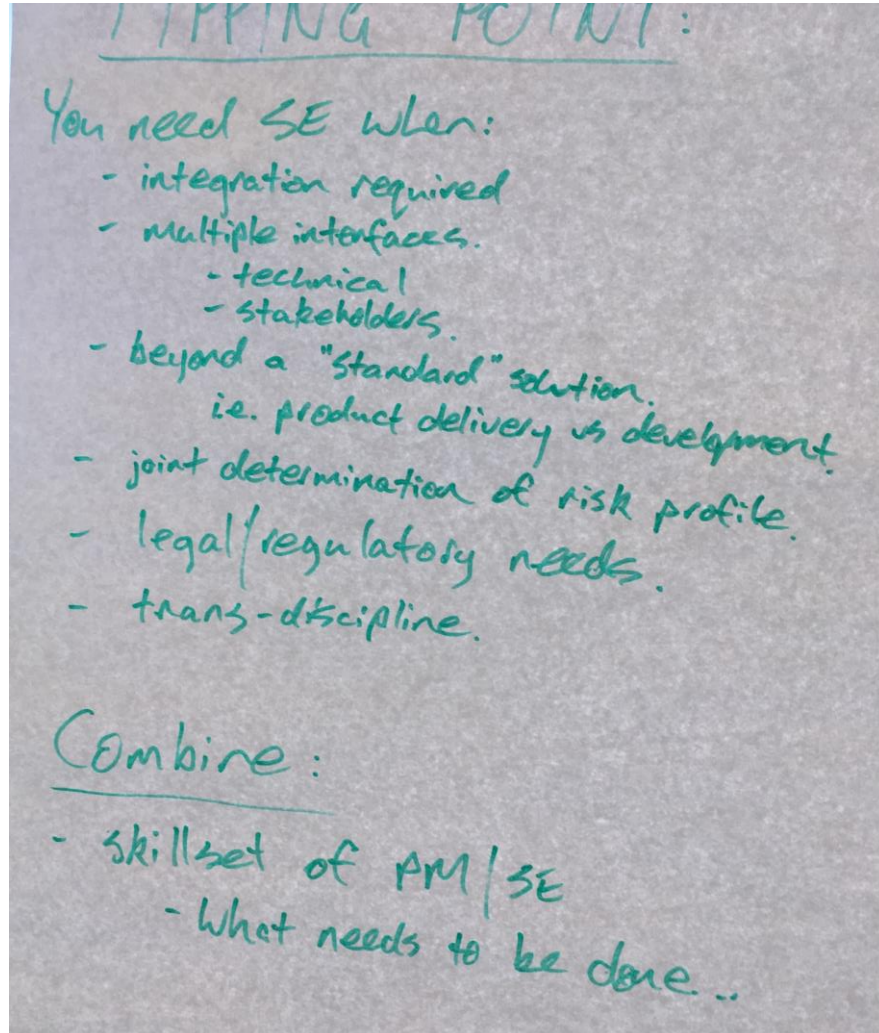 TIPPING POINT:
You need SE when:
- integration required
- multiple interfaces.
- technical
- stakeholders.
- beyond a "standard" solution.
i.e. product delivery vs development.
- joint determination of risk profile.
- legal/regulatory needs.
- trans-discipline.
Combine:
- skillset of PM/SE
- What needs to be done...